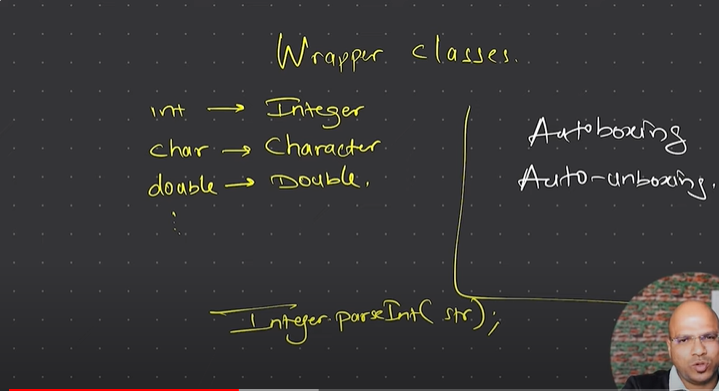 Wrapper classes.
int → Integer
char → Character
double → Double.
Autoboxing
Auto-unboxing.
Integer.parseInt( str );